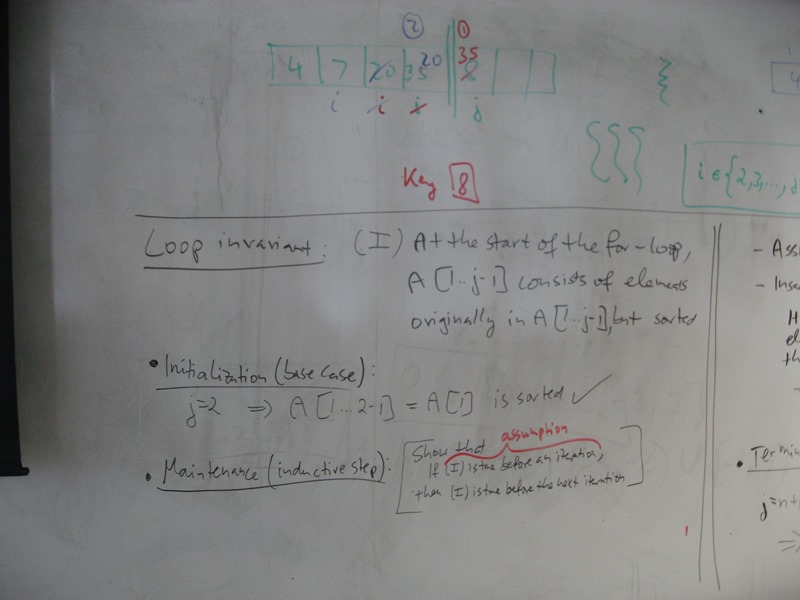 ② ①
4 7 20 35 20 35 8
i i j j
4
Key 8
i ∈ {2,3,..., j
Loop invariant: (I) At the start of the for-loop,
A[1..j-1] consists of elements
originally in A[1..j-1], but sorted
• Initialization (base case):
j=2 ⇒ A[1...2-1] = A[1] is sorted ✓
• Maintenance (inductive step):
assumption
[Show that
If (I) is true before an iteration,
then (I) is true before the next iteration]
- Ass
- Inse
H
el
th
• Termin
j=n+
⇒